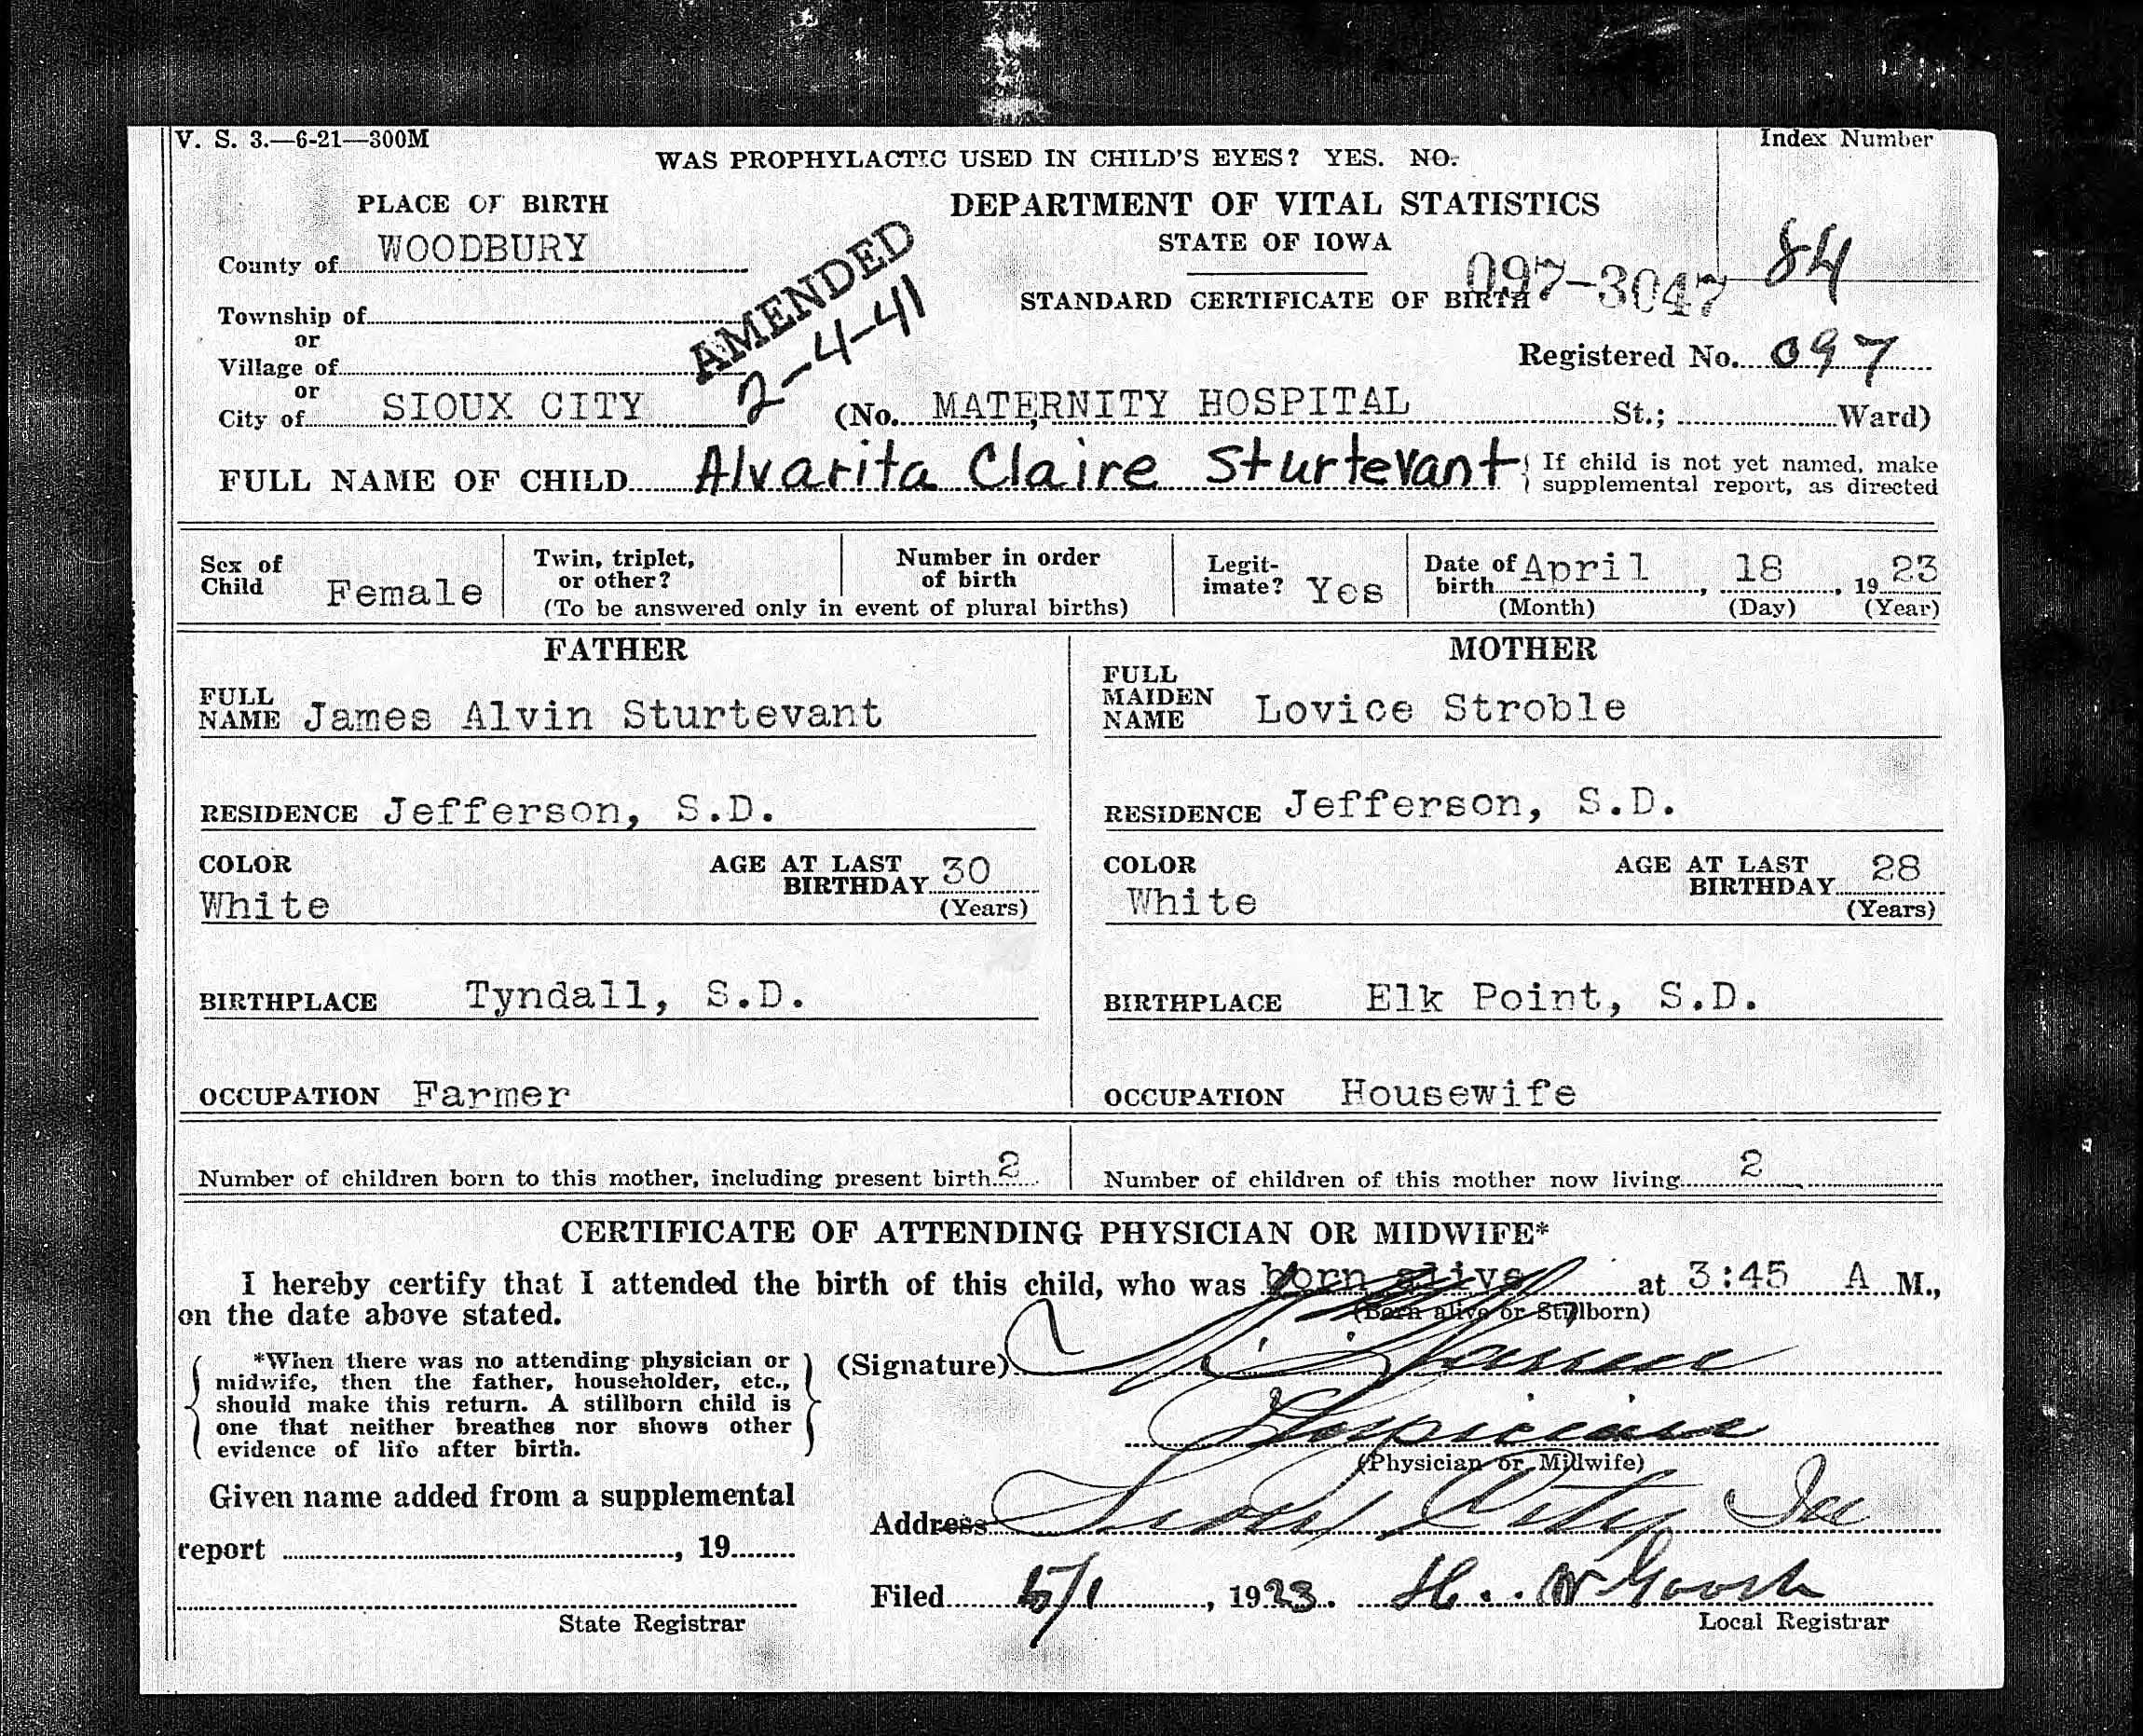 V. S. 3.—6-21—300M
Index Number
WAS PROPHYLACTIC USED IN CHILD'S EYES? YES. NO.
PLACE OF BIRTH
DEPARTMENT OF VITAL STATISTICS
County of WOODBURY
STATE OF IOWA
84
097-3047
STANDARD CERTIFICATE OF BIRTH
Township of
or
AMENDED
2-4-41
Village of
or
Registered No. 097
City of SIOUX CITY (No. MATERNITY HOSPITAL St.; Ward)
FULL NAME OF CHILD Alvarita Claire Sturtevant
If child is not yet named, make
supplemental report, as directed
Sex of
Child Female
Twin, triplet,
or other?
Number in order
of birth
(To be answered only in event of plural births)
Legit-
imate? Yes
Date of
birth April, 18, 1923
(Month) (Day) (Year)
FATHER
FULL
NAME James Alvin Sturtevant
RESIDENCE Jefferson, S.D.
COLOR
White
AGE AT LAST
BIRTHDAY 30
(Years)
BIRTHPLACE Tyndall, S.D.
OCCUPATION Farmer
MOTHER
FULL
MAIDEN
NAME Lovice Stroble
RESIDENCE Jefferson, S.D.
COLOR
White
AGE AT LAST
BIRTHDAY 28
(Years)
BIRTHPLACE Elk Point, S.D.
OCCUPATION Housewife
Number of children born to this mother, including present birth 2
Number of children of this mother now living 2
CERTIFICATE OF ATTENDING PHYSICIAN OR MIDWIFE*
I hereby certify that I attended the birth of this child, who was born alive at 3:45 A M.,
(Born alive or Stillborn)
on the date above stated.
*When there was no attending physician or
midwife, then the father, householder, etc.,
should make this return. A stillborn child is
one that neither breathes nor shows other
evidence of life after birth.
(Signature)
(Physician or Midwife)
Given name added from a supplemental
report , 19
State Registrar
Address Sioux City Ia
Filed 5/1, 1923.
Local Registrar